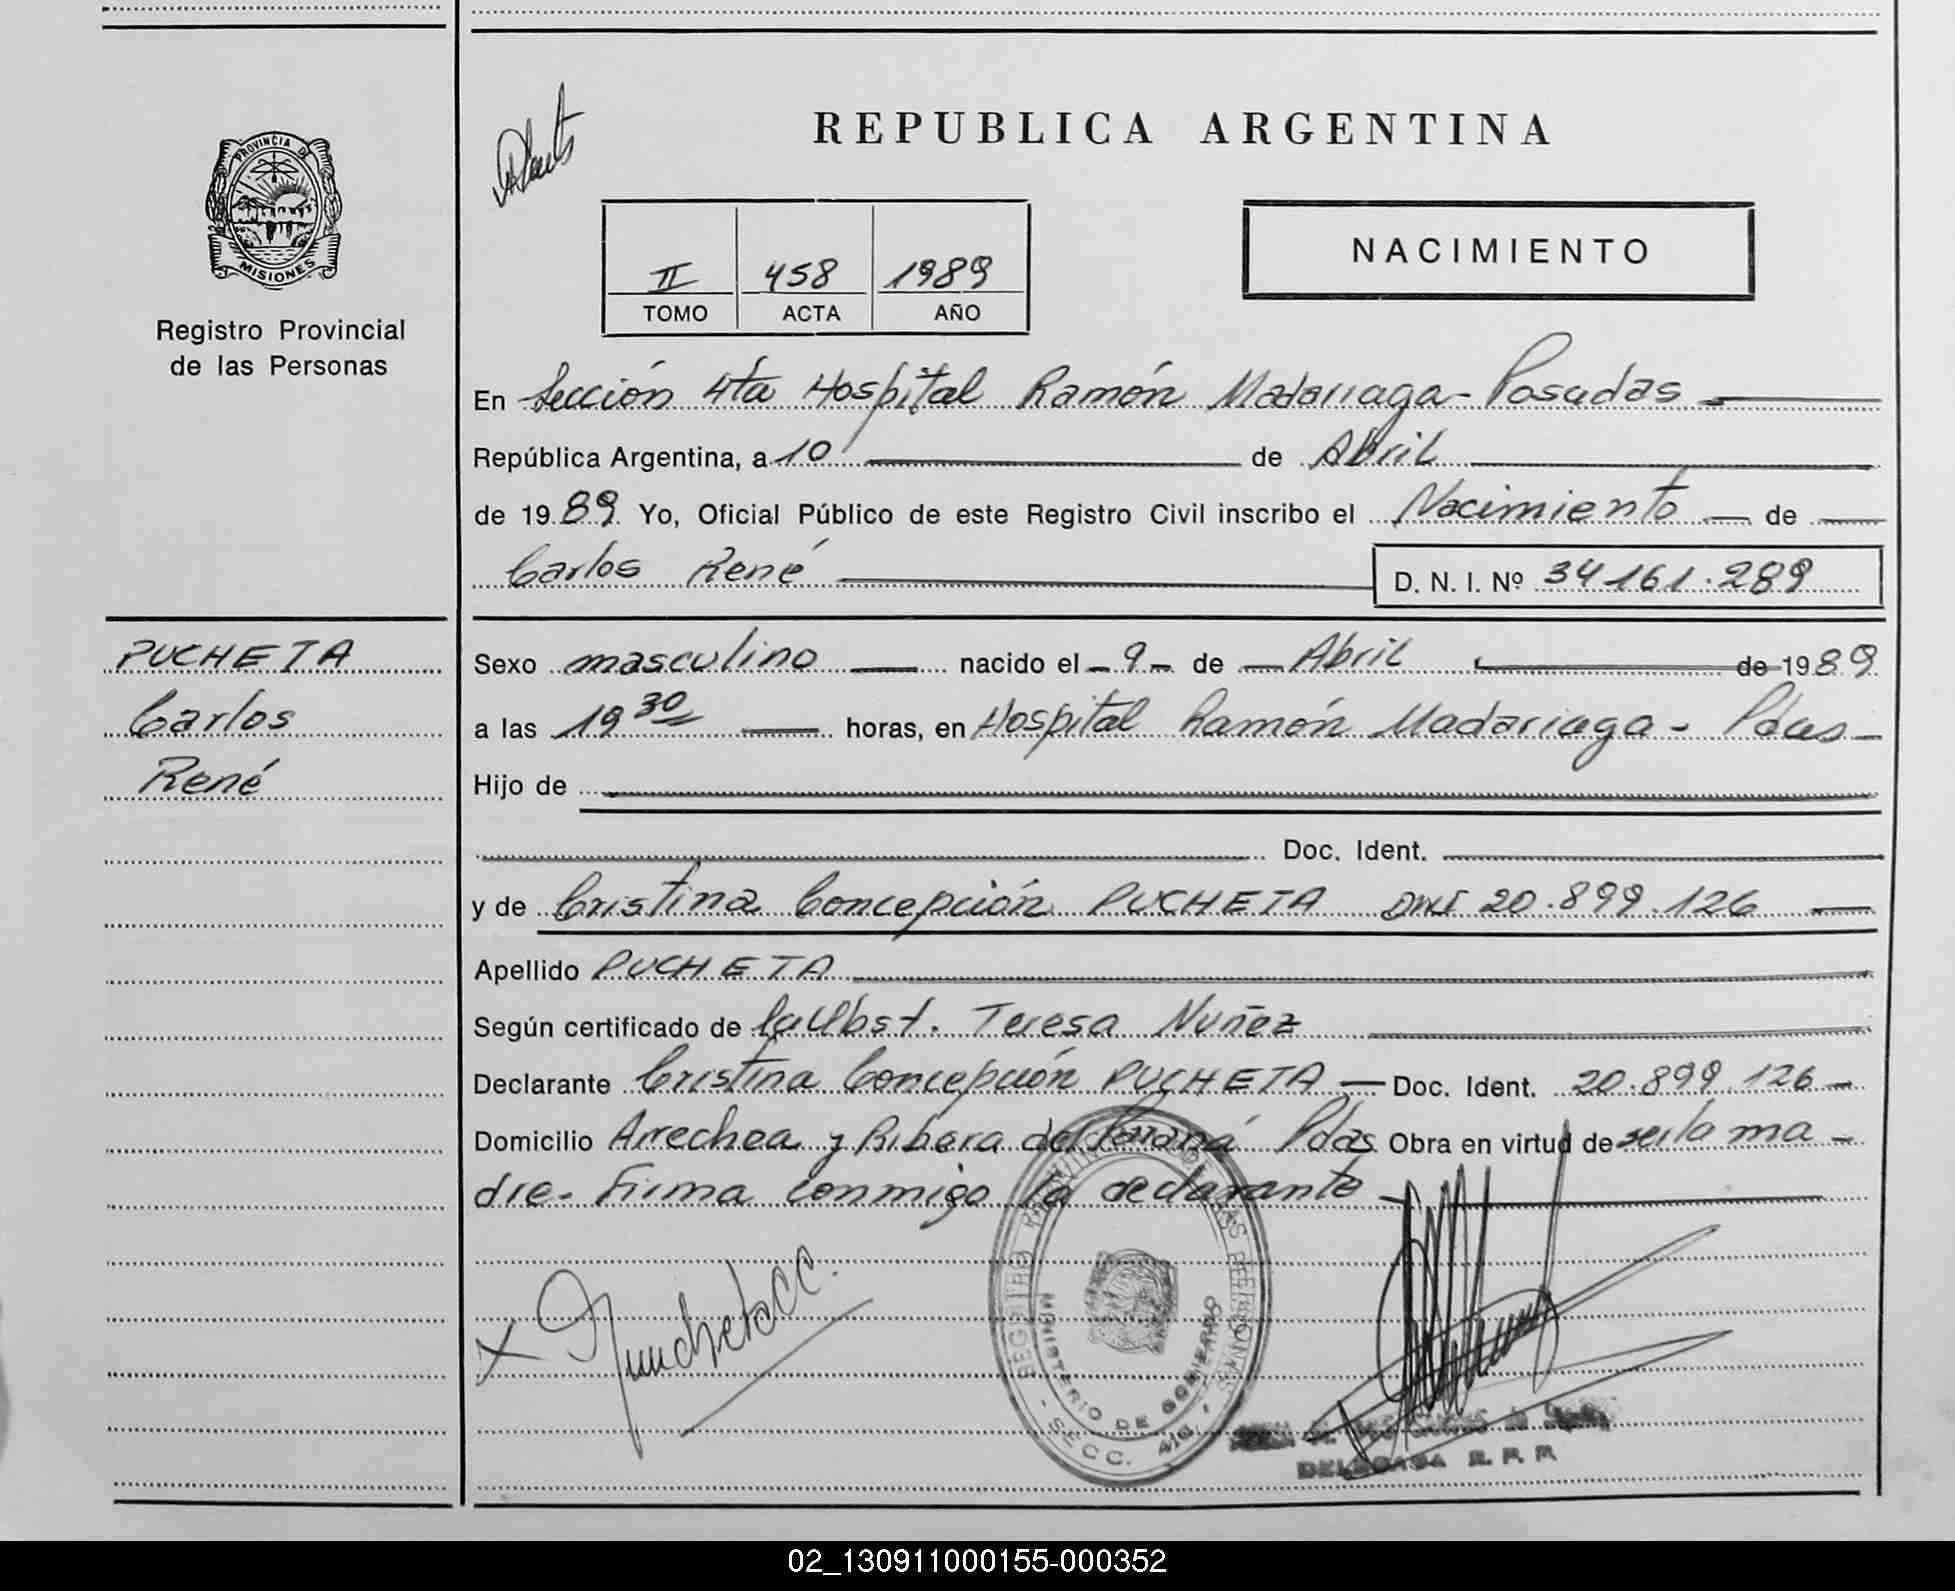 REPUBLICA ARGENTINA
PROVINCIA DE
MISIONES
Registro Provincial
de las Personas
II 458 1989
TOMO ACTA AÑO
NACIMIENTO
En Sección 4ta Hospital Ramón Madariaga - Posadas
República Argentina, a 10 de Abril
de 1989 Yo, Oficial Público de este Registro Civil inscribo el Nacimiento de
Carlos René D. N. I. Nº 34.161.289
PUCHETA
Carlos
René
Sexo masculino nacido el 9 de Abril de 1989
a las 19 30 horas, en Hospital Ramón Madariaga - Pdas
Hijo de
Doc. Ident.
y de Cristina Concepción PUCHETA DNI 20.899.126
Apellido PUCHETA
Según certificado de la Obst. Teresa Nuñez
Declarante Cristina Concepción PUCHETA Doc. Ident. 20.899.126
Domicilio Arrechea y Ribera del Paraná Pdas Obra en virtud de ser la ma-
dre- Firma conmigo la declarante
REGISTRO PROVINCIAL DE LAS PERSONAS
MINISTERIO DE GOBIERNO
- SECC. 4ta. -
DELEGADA R. P. P.
02_130911000155-000352